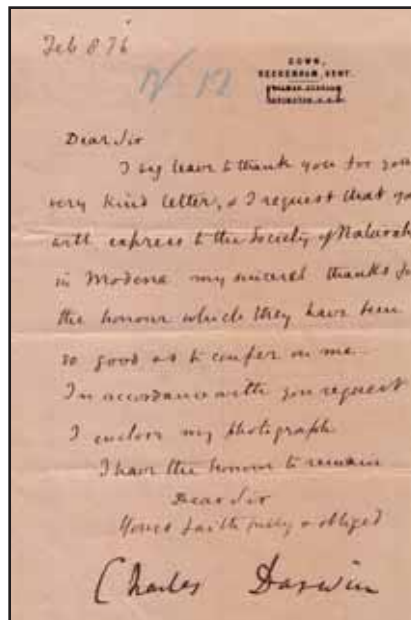 Feb 8 76
N 12
DOWN,
BECKENHAM, KENT.
Dear Sir
I beg leave to thank you for you
very kind letter, & I request that yo
will express to the Society of
in Modena my sincerest thanks fo
the honour which they have been
so good as to confer on me.
In accordance with your request
I enclose my photograph
I have the honour to remain
Dear Sir
Yours faithfully & obliged
Charles Darwin